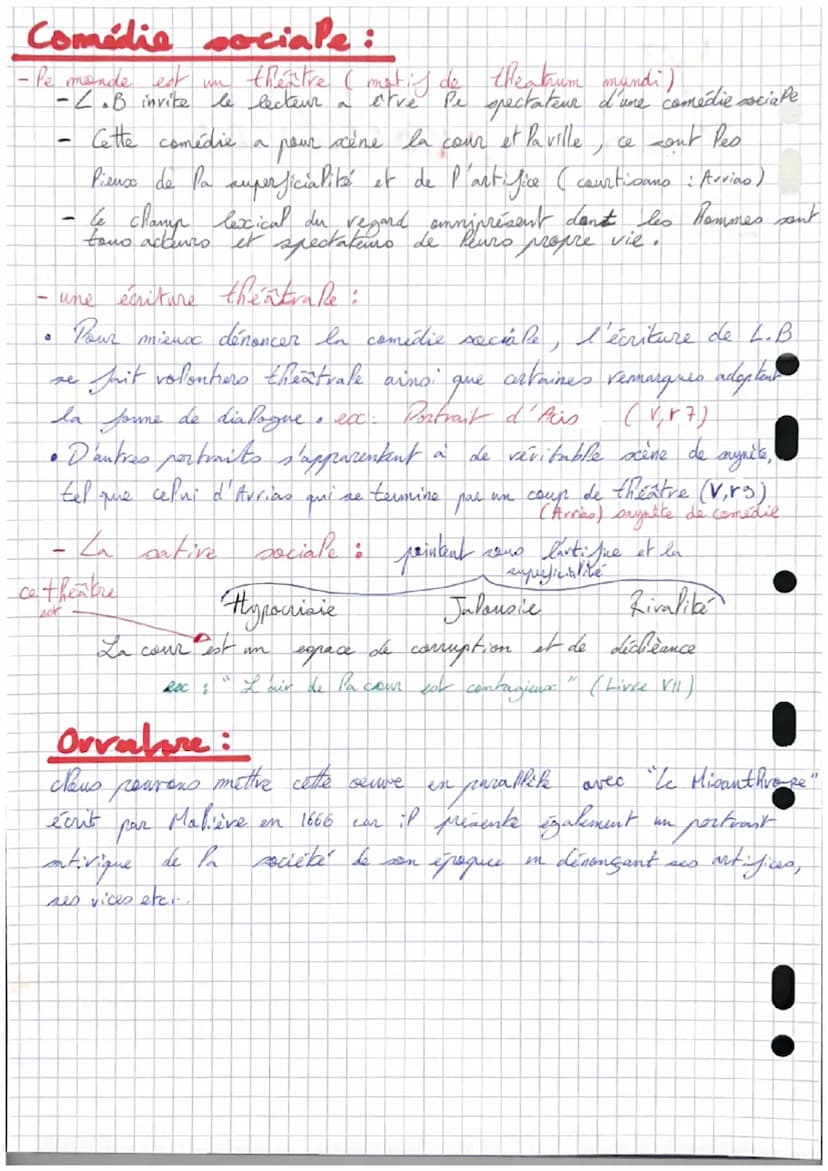 Comédie sociale :
- le monde est un théâtre ( motif de theatrum mundi)
- L.B invite le lecteur a être le spectateur d'une comédie sociale
- Cette comédie a pour scène la cour et la ville, ce sont les
lieux de la superficialité et de l'artifice ( courtisans : Arrias)
- Le champ lexical du regard omniprésent dont les hommes sont
tous acteurs et spectateurs de leurs propre vie.
- une écriture théâtrale :
• Pour mieux dénoncer la comédie sociale, l'écriture de L.B
se fait volontiers théâtrale ainsi que certaines remarques adoptent
la forme de dialogue. ex: Portrait d'Acis (V, r 7)
• D'autres portraits s'apparentent à de véritable scène de saynète,
tel que celui d'Arrias qui se termine par un coup de théâtre (V, r9)
(Arrias) saynète de comédie
- La satire sociale : peintent sous l'artifice et la
superficialité
ce théâtre
est
Hypocrisie Jalousie Rivalité
La cour est un espace de corruption et de déchéance
ex : " L'air de la cour est contagieux " (Livre VII)
Ouverture :
Nous pouvons mettre cette oeuvre en parallèle avec "Le Misanthrope"
écrit par Molière en 1666 car il présente également un portrait
satirique de la société de son époque en dénonçant ses artifices,
ses vices etc...